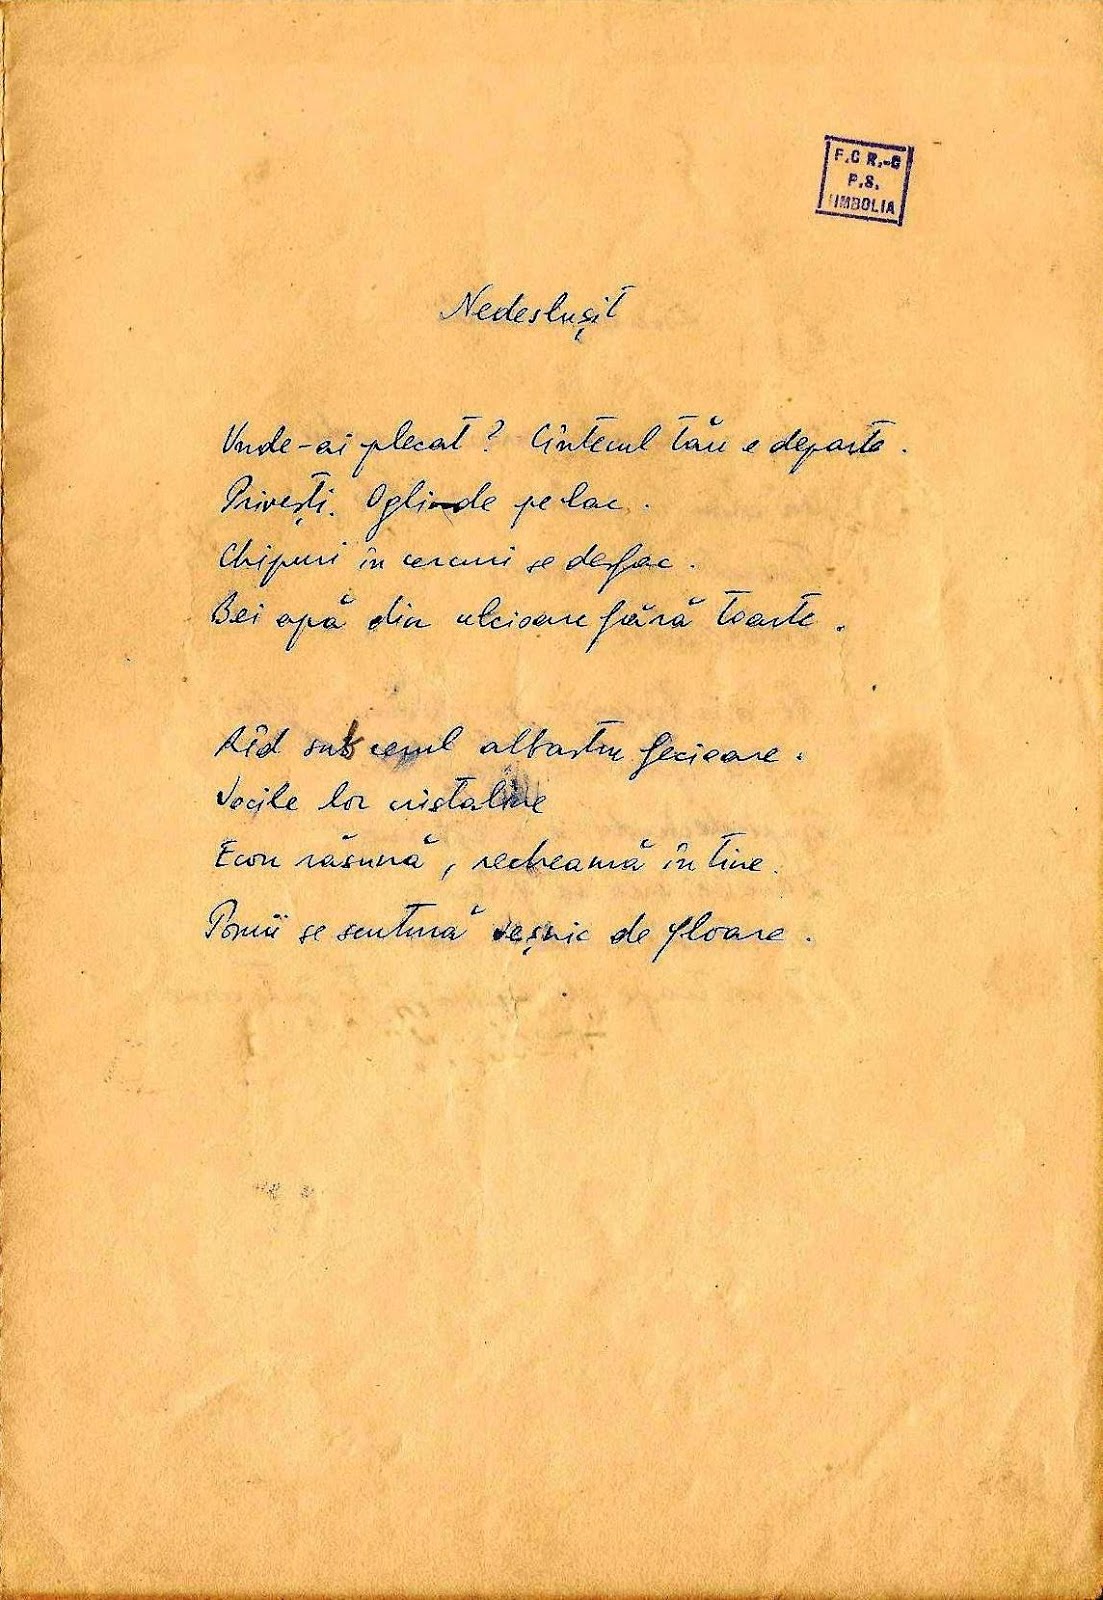 F.C R.-G
P.S.
IMBOLIA
Nedeslușit
Unde-ai plecat? Cîntecul tău e departe.
Privești. Oglinde pe lac.
Chipuri în cercuri se desfac.
Bei apă din ulcioare fără toarte.
Rîd sub cerul albastru fecioare.
Vocile lor cristaline
Ecou răsună, recheamă în tine.
Pomii se scutură veșnic de floare.